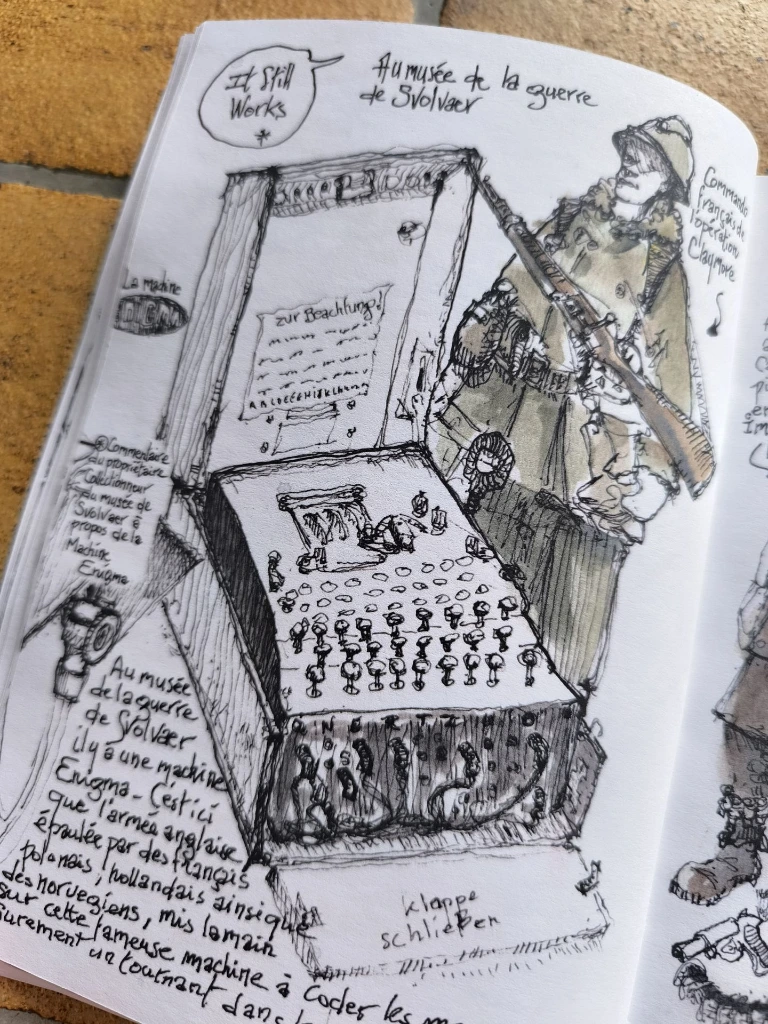 It Still
Works
*
Au musée de la guerre
de Svolvaer
Commando
français de
l'opération
Claymore
La machine
ENIGMA
zur Beachtung!
* Commentaire
du propriétaire
Collectionneur
du musée de
Svolvaer à
propos de la
Machine
Enigma
Q W E R T Z U I O
Au musée
de la guerre
de Svolvaer
il y a une machine
Enigma - C'est ici
que l'armée anglaise
épaulée par des français
polonais, hollandais ainsi que
des norvegiens, mis la main
sur cette fameuse machine à coder les
un tournant dans
klappe
schließen